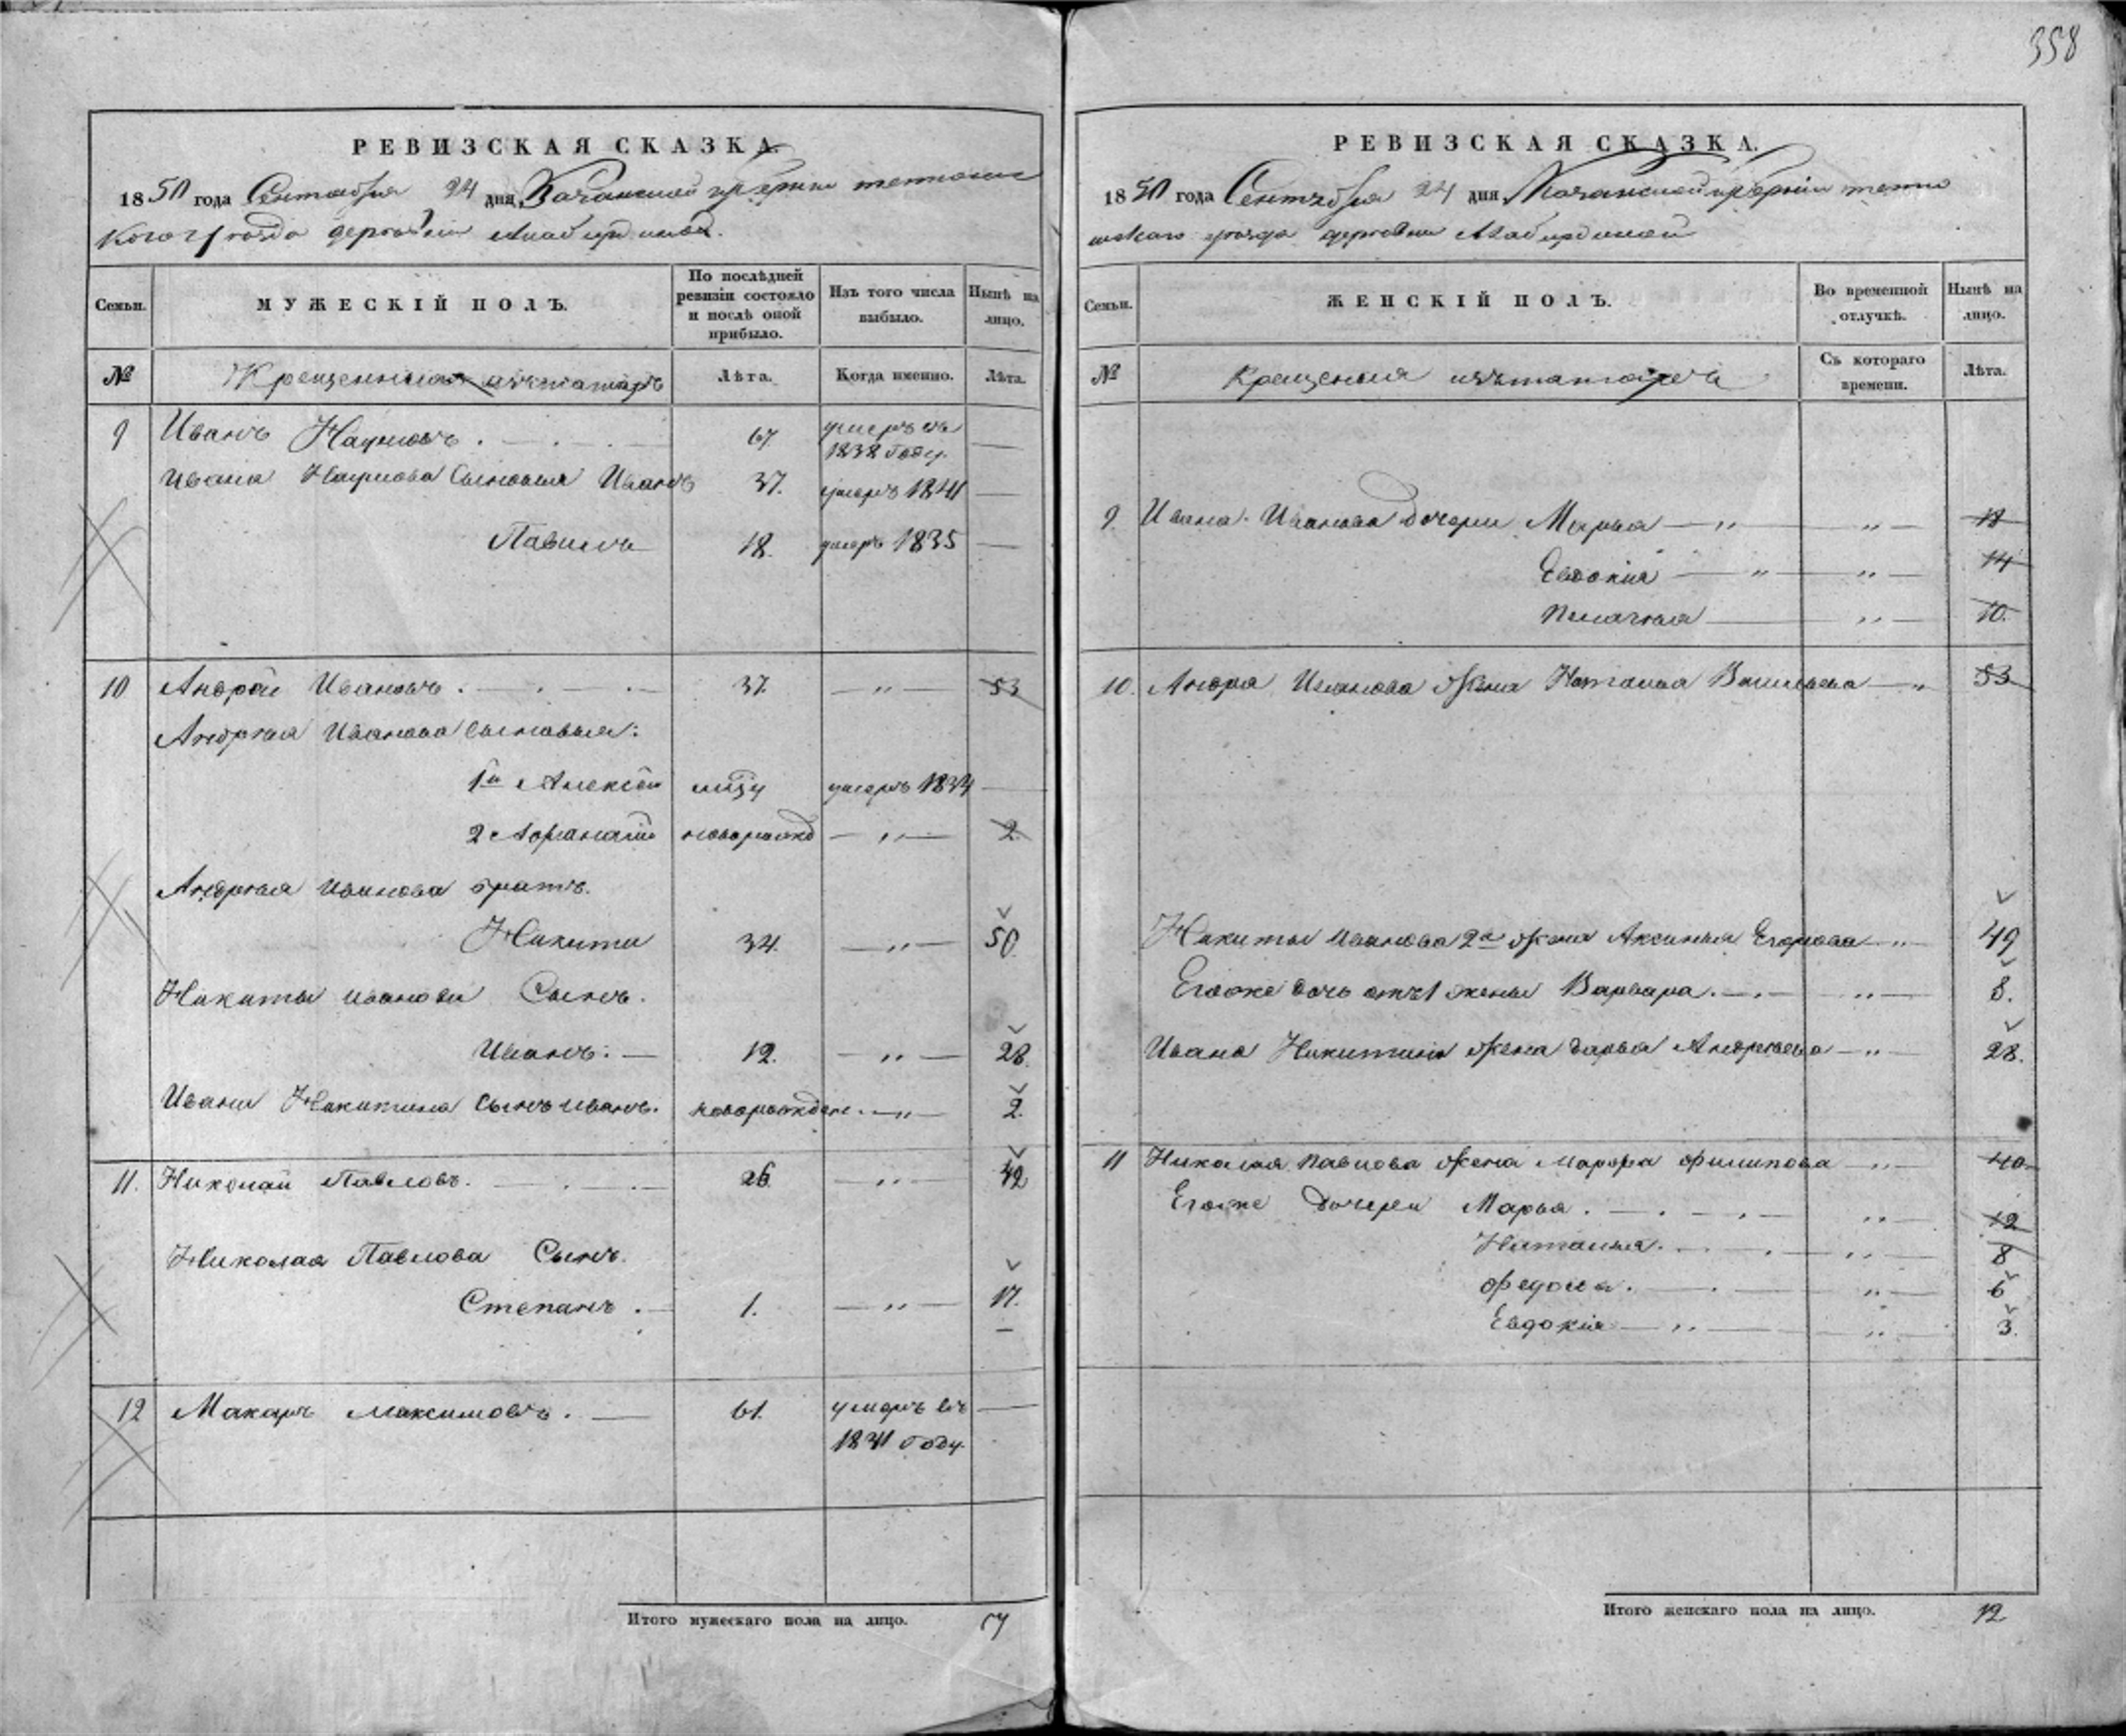 358
РЕВИЗСКАЯ СКАЗКА.
1850 года Сентября 24 дня, Казанской губернии тетюш
кого уезда деревни
Семьи.
МУЖЕСКІЙ ПОЛЪ.
По послѣдней ревизіи состояло и послѣ оной прибыло.
Изъ того числа выбыло.
Нынѣ на лицо.
№
Крещенныя изъ татаръ
Лѣта.
Когда именно.
Лѣта.
9 Иванъ Наумовъ . 67. умеръ въ 1838 году.
Ивана Наумова Сыновья Иванъ 37. умеръ 1841
Павилъ 18. умеръ 1835
10 Андрей Ивановъ . 37. — „ — 53
Андрея Иванова Сыновья:
1й Алексей умеръ 1834
2 Афанасий новорожд — „ — 2.
Андрея Иванова братъ.
Никита 34. — „ — 50.
Никиты Иванова Сынъ.
Иванъ. — 12. — „ — 28.
Ивана Никитина Сынъ Иванъ. новорожден. — „ — 2.
11. Николай Павловъ. 26. — „ — 42
Николая Павлова Сынъ.
Степанъ . — 1. — „ — 17.
12 Макаръ Максимовъ . — 61. умеръ въ 1841 году.
Итого мужескаго пола на лицо.
РЕВИЗСКАЯ СКАЗКА.
1850 года Сентября 24 дня, Казанской губерніи тетю
шскаго уезда деревни
Семьи.
ЖЕНСКІЙ ПОЛЪ.
Во временной отлучкѣ.
Нынѣ на лицо.
№
Крещеныя изъ татаръ
Съ котораго времени.
Лѣта.
9. Ивана Иванова дочери Марья — „ — „ — 18
Евдокия — „ — „ — 14
Пелагея — „ — 10.
10. Андрея Иванова жена Наталья Васильева — „ 53
Никиты Иванова 2я жена Аксинья Егорова — „ 49
Егоже дочь отъ 1 жены Варвара. — „ — 8.
Ивана Никитина жена Дарья Андреева — „ 28.
11 Николая Павлова жена Марфа Филипова — „ 40
Егоже Дочери Марья. — „ — 12
Наталья. — „ — 8
Федосья. — „ — 6
Евдокия — „ — „ — 3.
Итого женскаго пола на лицо. 12